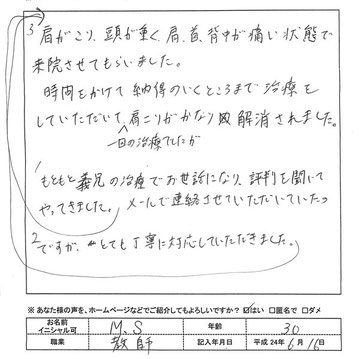 3 肩がこり、頭が重く、肩、首、背中が痛い状態で
来院させてもらいました。
時間をかけて納得のいくところまで治療を
していただいて、肩こりがかなり解消されました。
一回の治療でしたが
1 もともと義兄の治療でお世話になり、評判を聞いて
やってきました。メールで連絡させていただいていたの
2 ですが、とても丁寧に対応していただきました。
※あなた様の声を、ホームページなどでご紹介してもよろしいですか? ☑はい □匿名で □ダメ
お名前 イニシャル可 M.S 年齢 30
職業 教師 記入年月日 平成24年6月16日